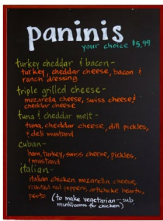 paninis
your choice $5,99
turkey cheddar & bacon -
turkey, cheddar cheese, bacon &
ranch dressing
triple grilled cheese -
mozarella cheese, swiss cheese &
cheddar cheese
tuna & cheddar melt -
tuna, cheddar cheese, dill pickles,
& deli mustard
cuban -
ham, turkey, swiss cheese, pickles,
& mustard
italian -
italian chicken mozarella cheese,
roasted red peppers, artichoke hearts,
pesto
(to make vegetarian - sub
mushrooms for chicken)